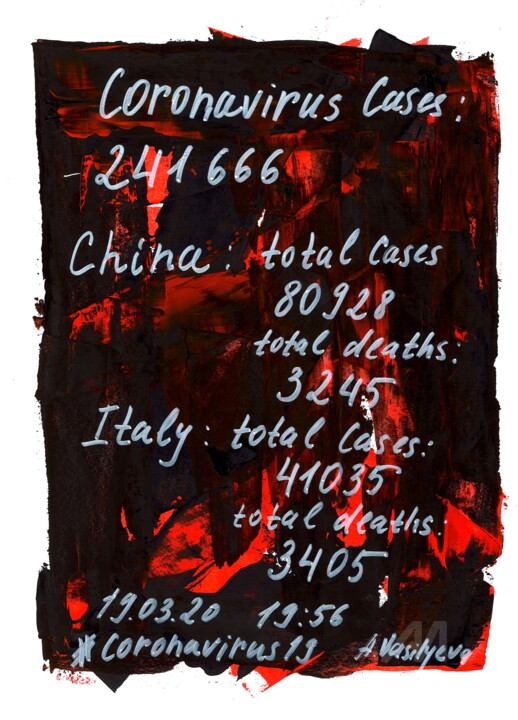 Coronavirus Cases:
- 241 666
China: total Cases
80928
total deaths:
3245
Italy: total Cases:
41035
total deaths:
3405
19.03.20 19:56
#Coronavirus19 AVasilyeva